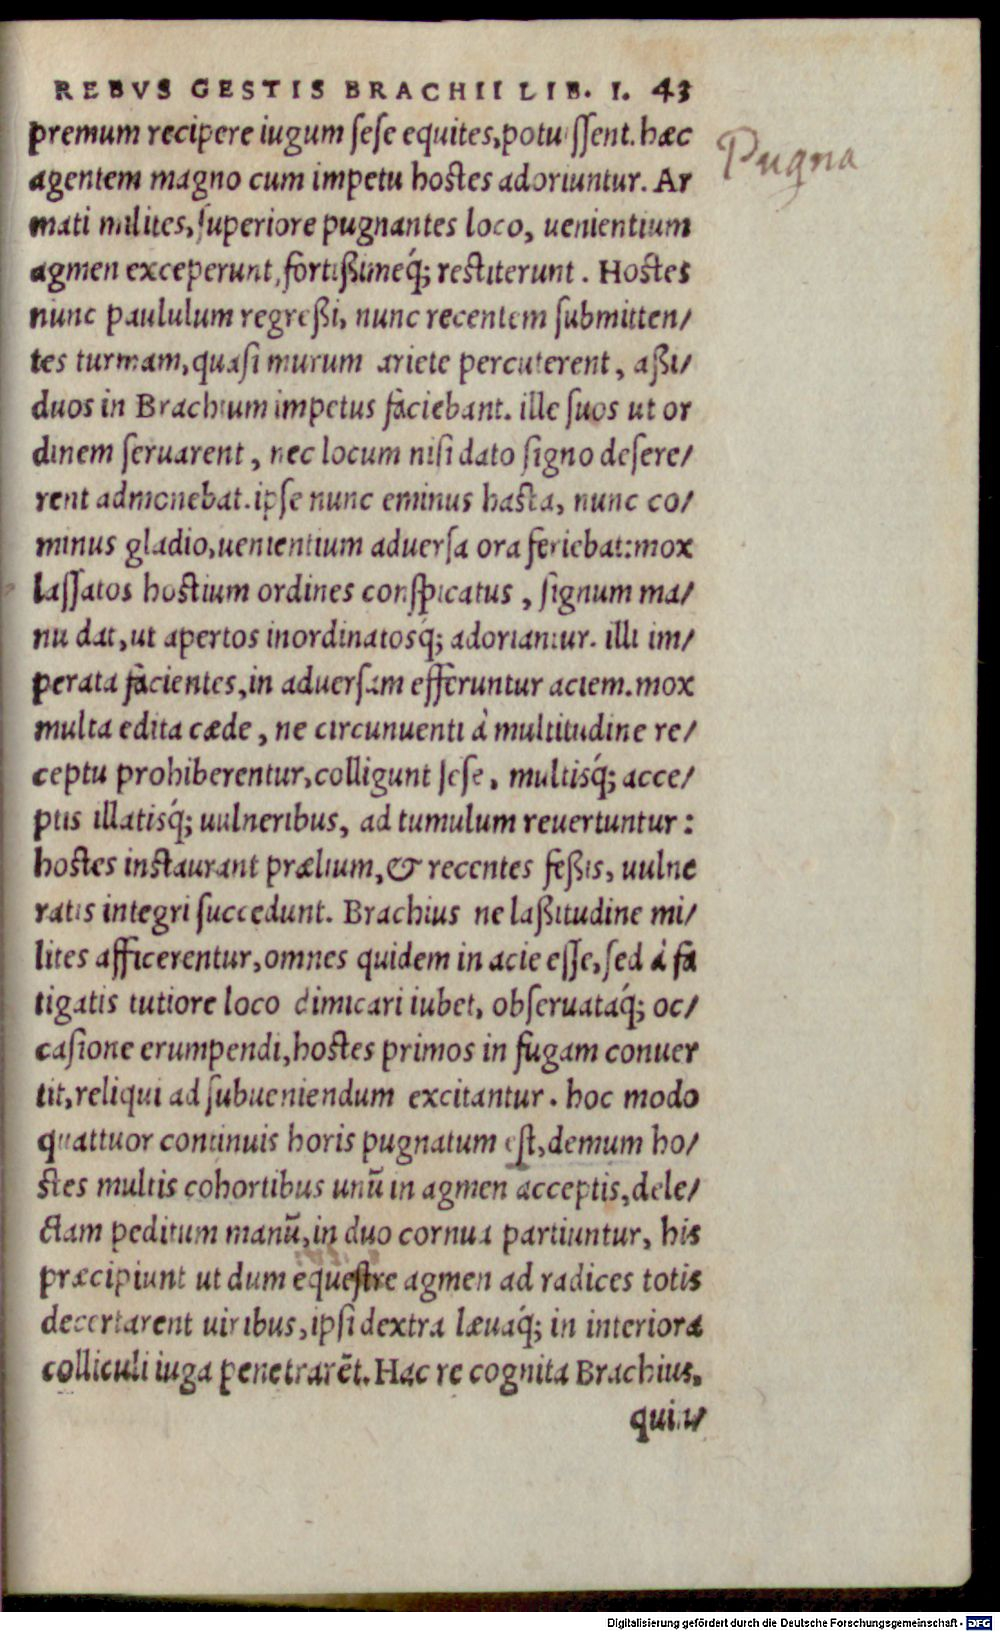 REBVS GESTIS BRACHII LIB. I. 43
premum recipere iugum sese equites, potuissent. hæc
Pugna
agentem magno cum impetu hostes adoriuntur. Ar
mati milites, superiore pugnantes loco, uenientium
agmen exceperunt, fortißimeq́; restiterunt. Hostes
nunc paululum regreßi, nunc recentem submitten/
tes turmam, quasi murum ariete percuterent, aßi/
duos in Brachium impetus faciebant. ille suos ut or
dinem seruarent, nec locum nisi dato signo desere/
rent admonebat. ipse nunc eminus hasta, nunc co/
minus gladio, uenientium aduersa ora feriebat: mox
lassatos hostium ordines conspicatus, signum ma/
nu dat, ut apertos inordinatosq́; adoriantur. illi im/
perata facientes, in aduersam efferuntur aciem. mox
multa edita cæde, ne circunuenti à multitudine re/
ceptu prohiberentur, colligunt sese, multisq́; acce/
ptis illatisq́; uulneribus, ad tumulum reuertuntur:
hostes instaurant prælium, & recentes feßis, uulne
ratis integri succedunt. Brachius ne laßitudine mi/
lites afficerentur, omnes quidem in acie esse, sed à fa
tigatis tutiore loco dimicari iubet, obseruataq́; oc/
casione erumpendi, hostes primos in fugam conuer
tit, reliqui ad subueniendum excitantur. hoc modo
quattuor continuis horis pugnatum est, demum ho/
stes multis cohortibus unū in agmen acceptis, dele/
ctam peditum manū, in duo cornua partiuntur, his
præcipiunt ut dum equestre agmen ad radices totis
decertarent uiribus, ipsi dextra læuaq́; in interiora
colliculi iuga penetrarēt. Hac re cognita Brachius,
Digitalisierung gefördert durch die Deutsche Forschungsgemeinschaft - DFG